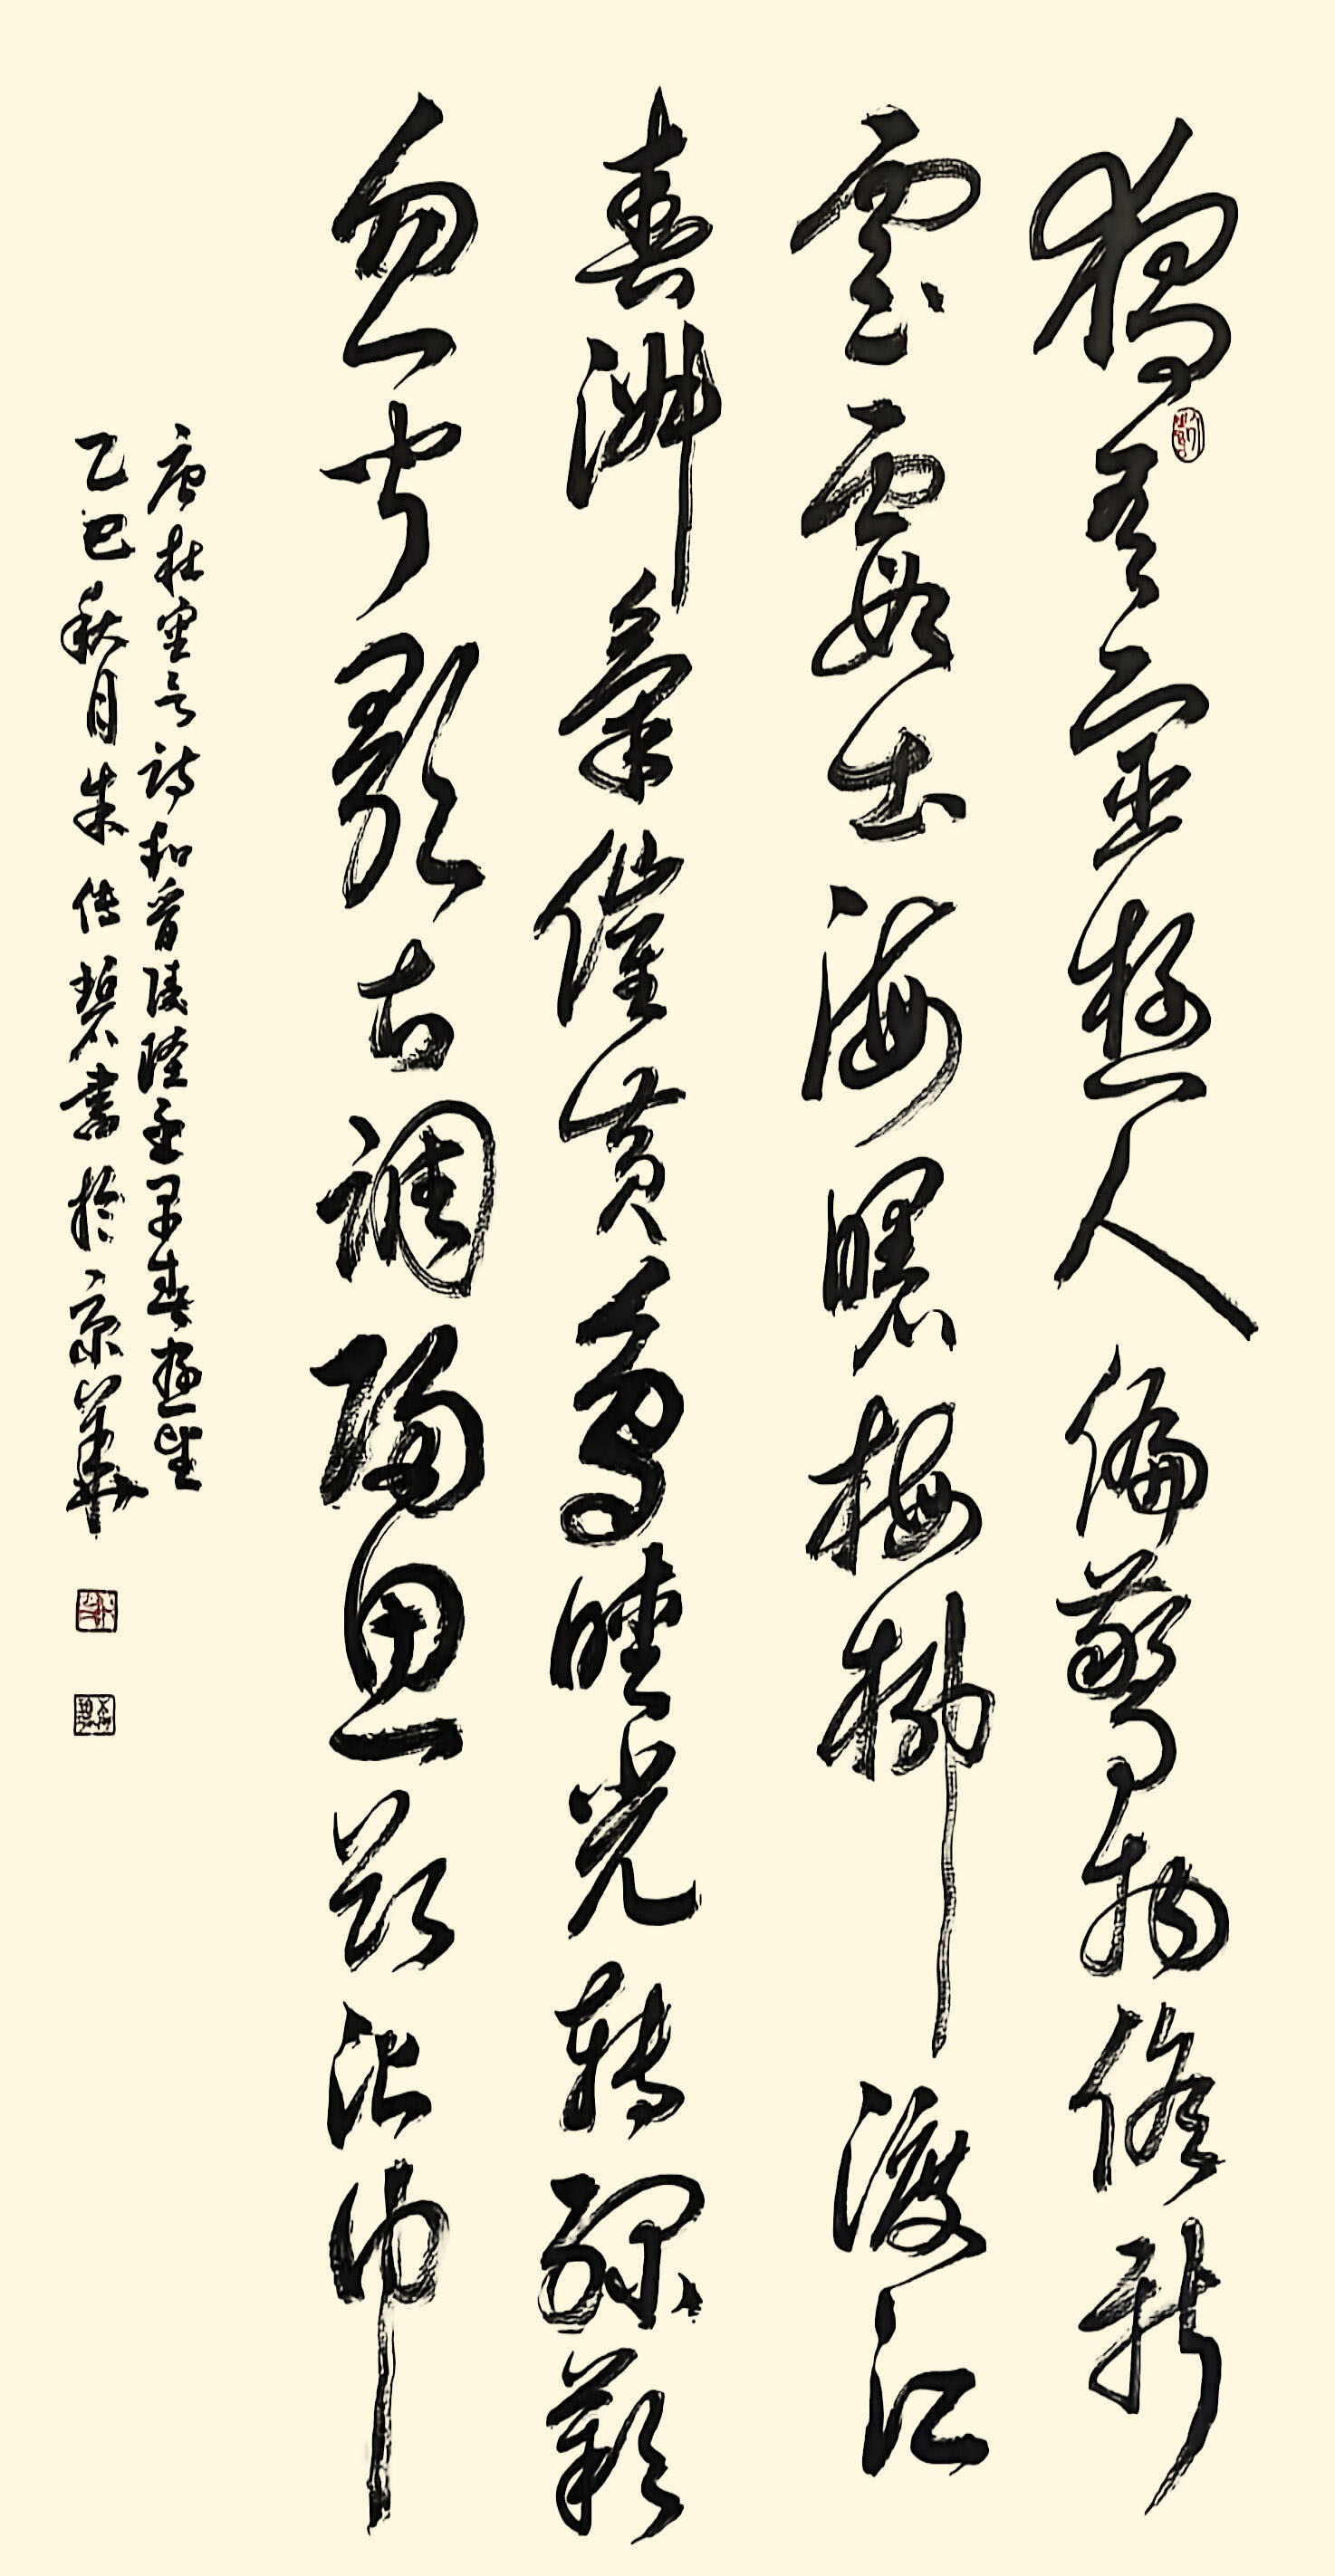 獨有宦遊人偏驚物候新
雲霞出海曙梅柳渡江
春淑氣催黃鳥晴光轉綠蘋
忽聞歌古調歸思欲沾巾
唐杜審言詩和晉陵陸丞早春遊望
乙巳秋月朱傳碧書於京華